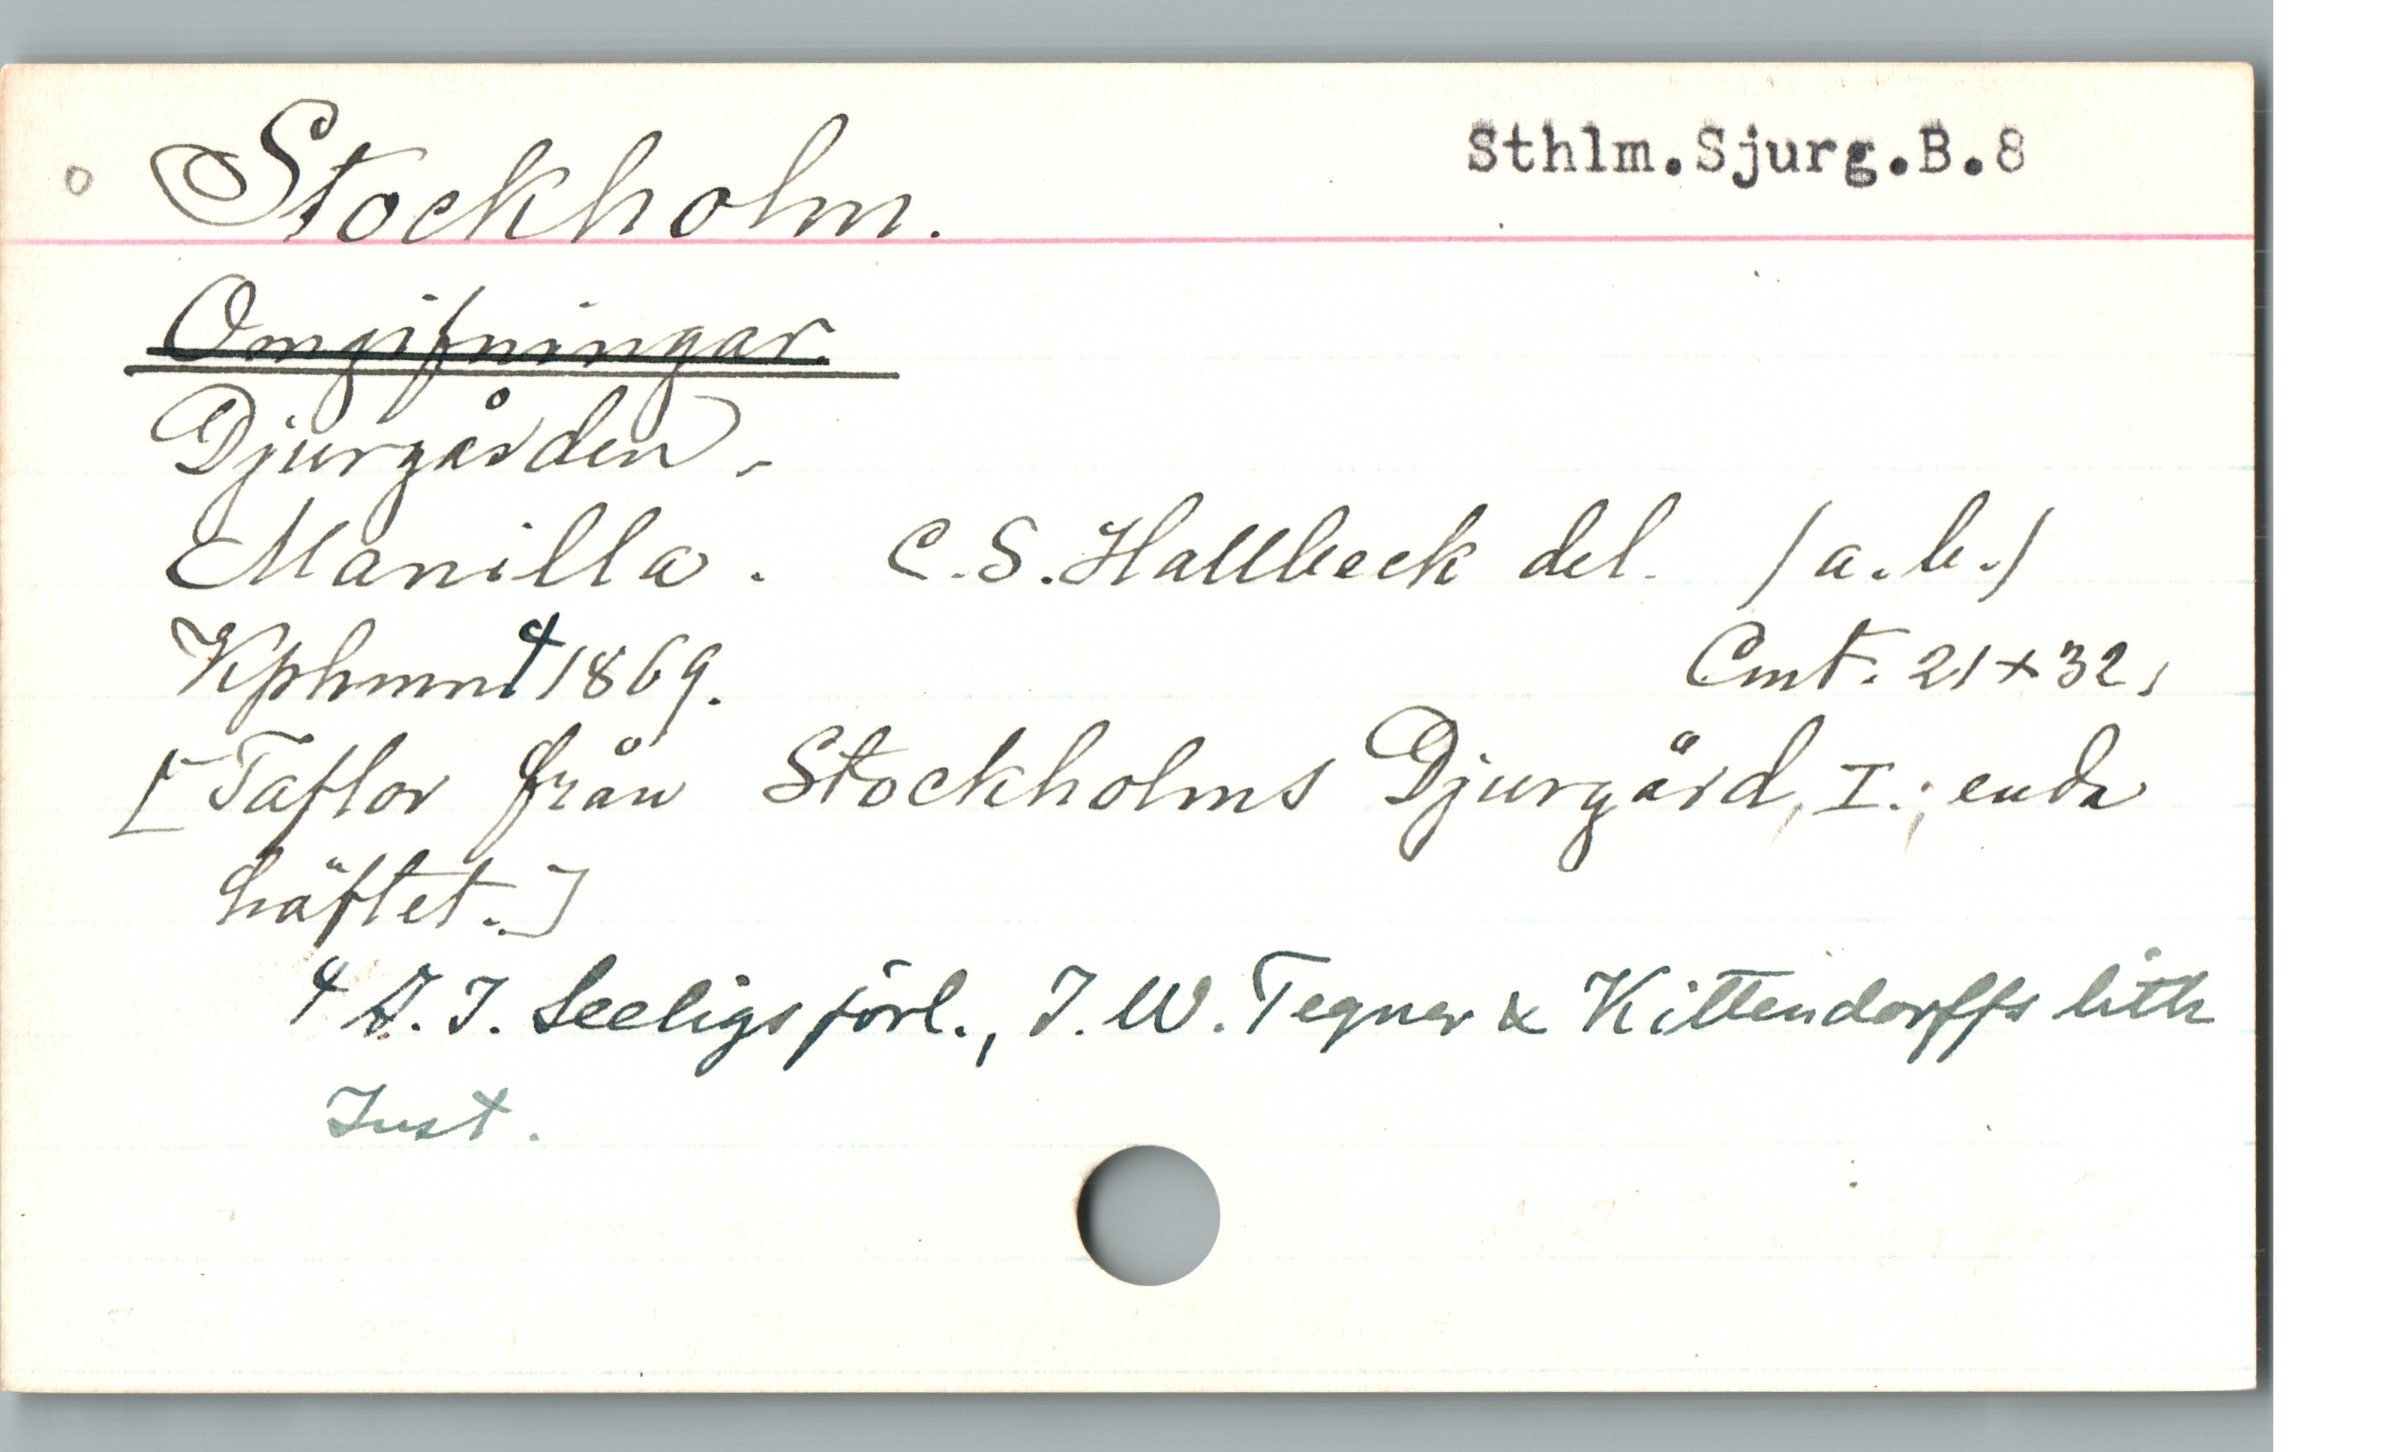 o Stockholm. Sthlm.Sjurg.B.8
Omgifningar.
Djurgården.
Manilla. C.S. Hallbeck del. (a. b.)
Kphmn 4 1869. Cmt. 21 x 32.
[Taflor från Stockholms Djurgård, I.; enda
häftet.]
4 A. J. Seeligs förl., J. W. Tegner & Kittendorffs lith
Inst.